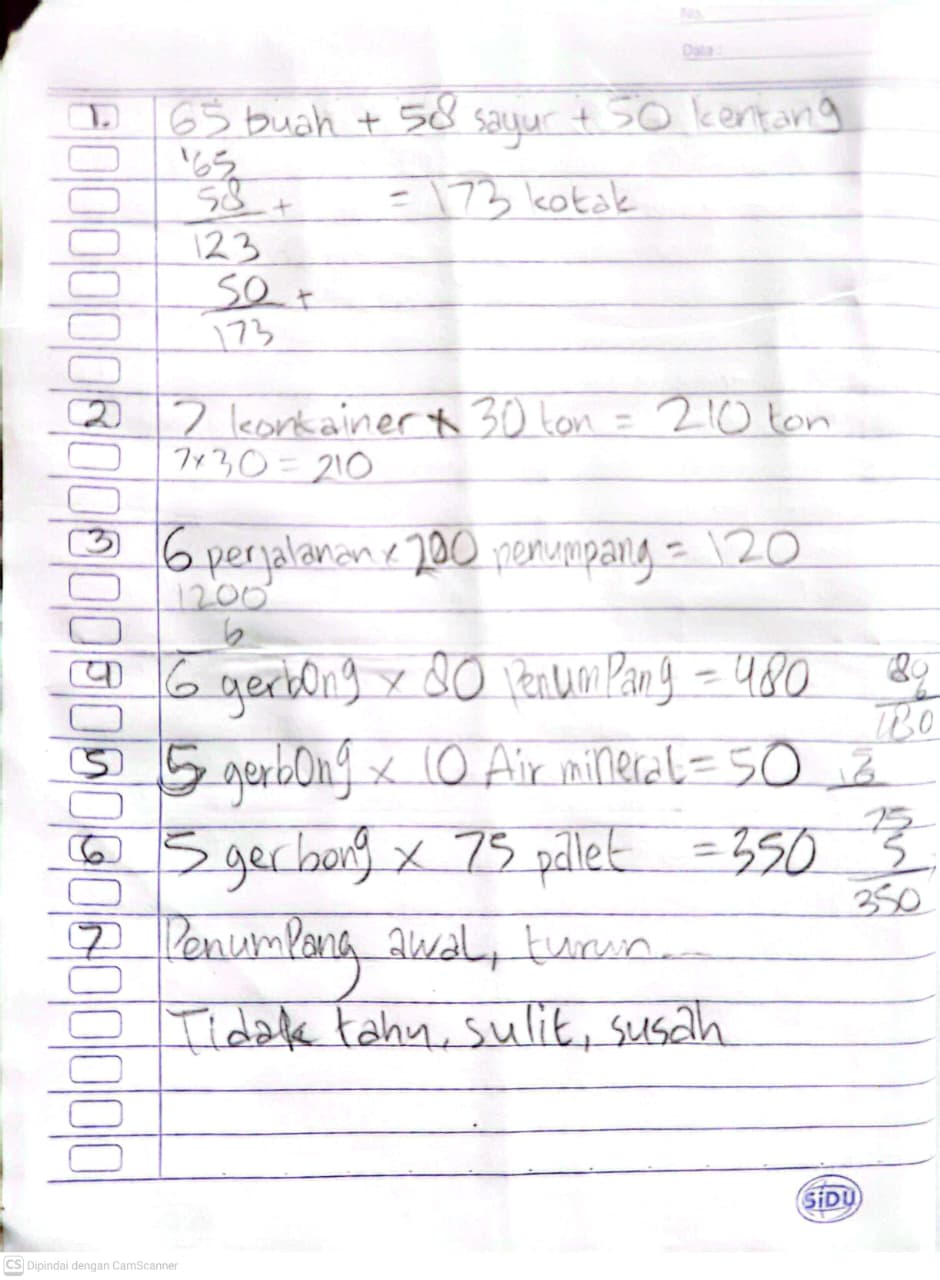 No.
Date:
1. 65 buah + 58 sayur + 50 kentang
65
58 + = 173 kotak
123
50 +
173
2 7 kontainer x 30 ton = 210 ton
7x30 = 210
3 6 perjalanan x 200 penumpang = 120
1200
6
4 6 gerbong x 80 Penumpang = 480
6
180
5 5 gerbong x 10 Air mineral = 50
6 5 gerbong x 75 palet = 350
75
5
350
7 Penumpang awal, turun...
Tidak tahu, sulit, susah
SiDU
CS Dipindai dengan CamScanner